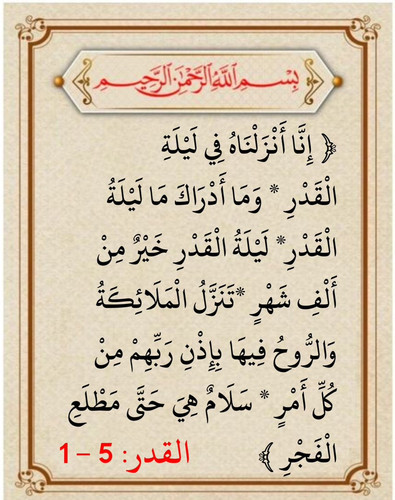 بِسْمِ اللَّهِ الرَّحْمَٰنِ الرَّحِيمِ
﴿ إِنَّا أَنْزَلْنَاهُ فِي لَيْلَةِ
الْقَدْرِ * وَمَا أَدْرَاكَ مَا لَيْلَةُ
الْقَدْرِ* لَيْلَةُ الْقَدْرِ خَيْرٌ مِنْ
أَلْفِ شَهْرٍ *تَنَزَّلُ الْمَلَائِكَةُ
وَالرُّوحُ فِيهَا بِإِذْنِ رَبِّهِمْ مِنْ
كُلِّ أَمْرٍ * سَلَامٌ هِيَ حَتَّى مَطْلَعِ
الْفَجْرِ ﴾ القدر: 5 – 1